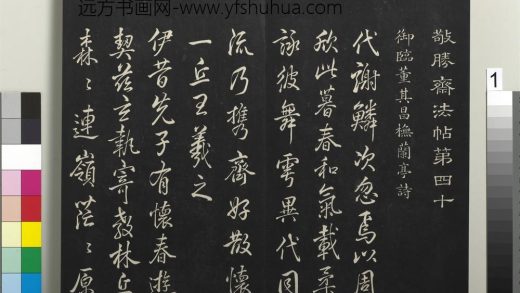 远方书画网-www.yfshuhua.com
敬勝齋法帖第四十
御臨董其昌橅蘭亭詩
代謝鱗次忽焉以周
欣此暮春和氣載柔
詠彼舞雩異代同
流乃携齊好散懷
一丘王羲之
伊昔先子有懷春遊
契茲言執寄敖林丘
森〻連嶺茫〻原
1